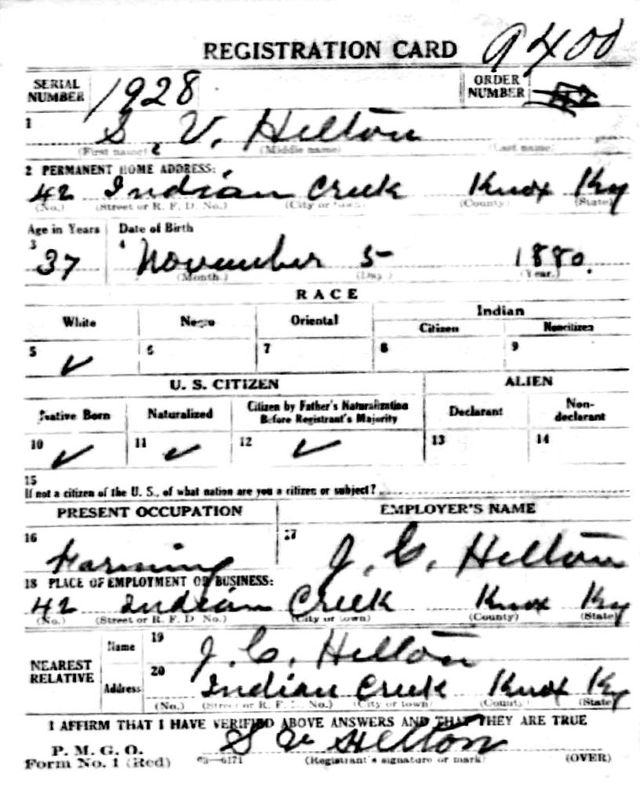 REGISTRATION CARD 9400
SERIAL NUMBER 1928 ORDER NUMBER
1 S. V. Helton
(First name) (Middle name) (Last name)
2 PERMANENT HOME ADDRESS:
42 Indian Creek Knox Ky
(No.) (Street or R. F. D. No.) (City or town) (County) (State)
Age in Years Date of Birth
3 37 4 November 5 1880.
(Month.) (Day.) (Year.)
RACE
White Negro Oriental Indian
Citizen Noncitizen
5 ✓ 6 7 8 9
U. S. CITIZEN ALIEN
Native Born Naturalized Citizen by Father's Naturalization Before Registrant's Majority Declarant Non-declarant
10 ✓ 11 ✓ 12 ✓ 13 14
15
If not a citizen of the U. S., of what nation are you a citizen or subject?
PRESENT OCCUPATION EMPLOYER'S NAME
16 Farming 17 J. C. Helton
18 PLACE OF EMPLOYMENT OR BUSINESS:
42 Indian Creek Knox Ky
(No.) (Street or R. F. D. No.) (City or town) (County) (State)
NEAREST RELATIVE Name 19 J. C. Helton
Address 20 Indian Creek Knox Ky
(No.) (Street or R. F. D. No.) (City or town) (County) (State)
I AFFIRM THAT I HAVE VERIFIED ABOVE ANSWERS AND THAT THEY ARE TRUE
P. M. G. O.
Form No. 1 (Red) 03—6171 S V Helton
(Registrant's signature or mark) (OVER)